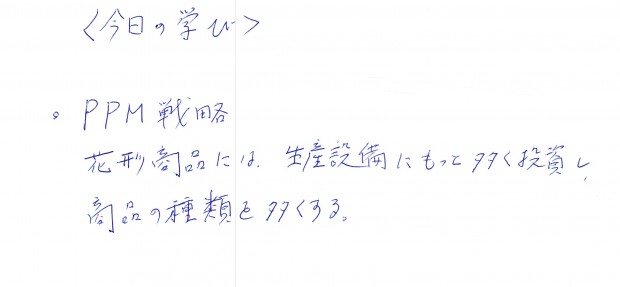 <今日の学び>
。PPM戦略
花形商品には、生産設備にもっと多く投資し、
商品の種類を多くする。